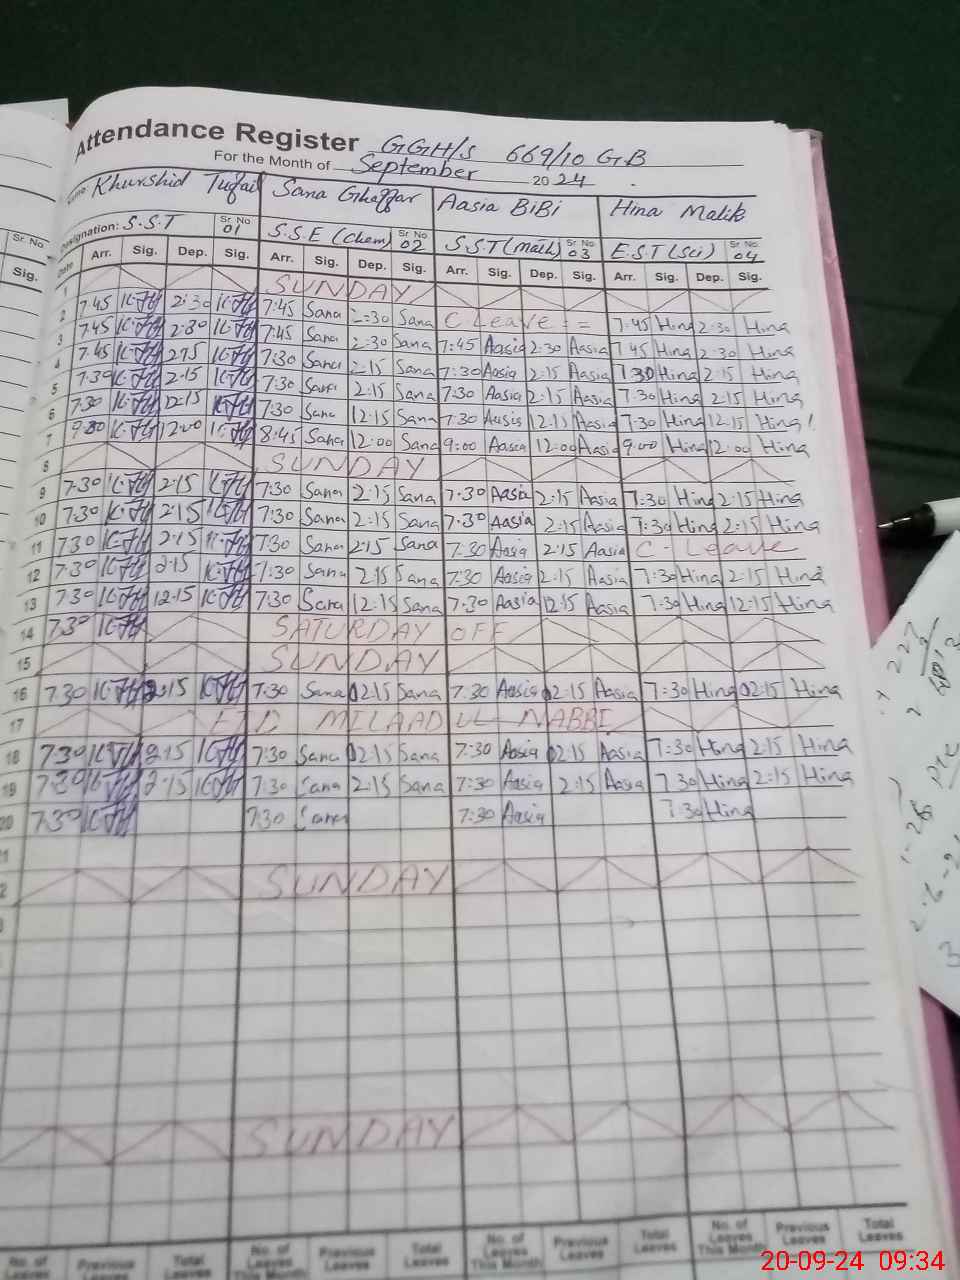 Attendance Register GGH/S 669/10 G.B
For the Month of September 2024
Name: Khurshid Tufail Sana Ghaffar Aasia BiBi Hina Malik
Designation: S.S.T Sr No. 01 S.S.E (chem) Sr No. 02 S.S.T (math) Sr No. 03 E.S.T (Sci) Sr No. 04
Sr No.
Sig.
Date Arr. Sig. Dep. Sig. Arr. Sig. Dep. Sig. Arr. Sig. Dep. Sig. Arr. Sig. Dep. Sig.
1 SUNDAY
2 7:45 2:30 7:45 Sana 2:30 Sana C. Leave 7:45 Hina 2:30 Hina
3 7:45 2:30 7:45 Sana 2:30 Sana 7:45 Aasia 2:30 Aasia 7:45 Hina 2:30 Hina
4 7:45 2:15 7:30 Sana 2:15 Sana 7:30 Aasia 2:15 Aasia 7:30 Hina 2:15 Hina
5 7:30 2:15 7:30 Sana 2:15 Sana 7:30 Aasia 2:15 Aasia 7:30 Hina 2:15 Hina
6 7:30 12:15 7:30 Sana 12:15 Sana 7:30 Aasia 12:15 Aasia 7:30 Hina 12:15 Hina
7 12:00 8:45 Sana 12:00 Sana 9:00 Aasia 12:00 Aasia 9:00 Hina 12:00 Hina
8 SUNDAY
9 7:30 2:15 7:30 Sana 2:15 Sana 7:30 Aasia 2:15 Aasia 7:30 Hina 2:15 Hina
10 7:30 2:15 7:30 Sana 2:15 Sana 7:30 Aasia 2:15 Aasia 7:30 Hina 2:15 Hina
11 7:30 2:15 7:30 Sana 2:15 Sana 7:30 Aasia 2:15 Aasia C- Leave
12 7:30 2:15 7:30 Sana 2:15 Sana 7:30 Aasia 2:15 Aasia 7:30 Hina 2:15 Hina
13 7:30 12:15 7:30 Sana 12:15 Sana 7:30 Aasia 12:15 Aasia 7:30 Hina 12:15 Hina
14 7:30 SATURDAY OFF
15 SUNDAY
16 7:30 2:15 7:30 Sana 02:15 Sana 7:30 Aasia 02:15 Aasia 7:30 Hina 02:15 Hina
17 EID MILAAD UL NABBI
18 7:30 2:15 7:30 Sana 02:15 Sana 7:30 Aasia 02:15 Aasia 7:30 Hina 2:15 Hina
19 7:30 2:15 7:30 Sana 2:15 Sana 7:30 Aasia 2:15 Aasia 7:30 Hina 2:15 Hina
20 7:30 7:30 Sana 7:30 Aasia 7:30 Hina
SUNDAY
SUNDAY
No. of Leaves Previous Leaves Total Leaves No. of Leaves This Month Previous Leaves Total Leaves No. of Leaves This Month Previous Leaves Total Leaves No. of Leaves This Month Previous Leaves Total Leaves
20-09-24 09:34